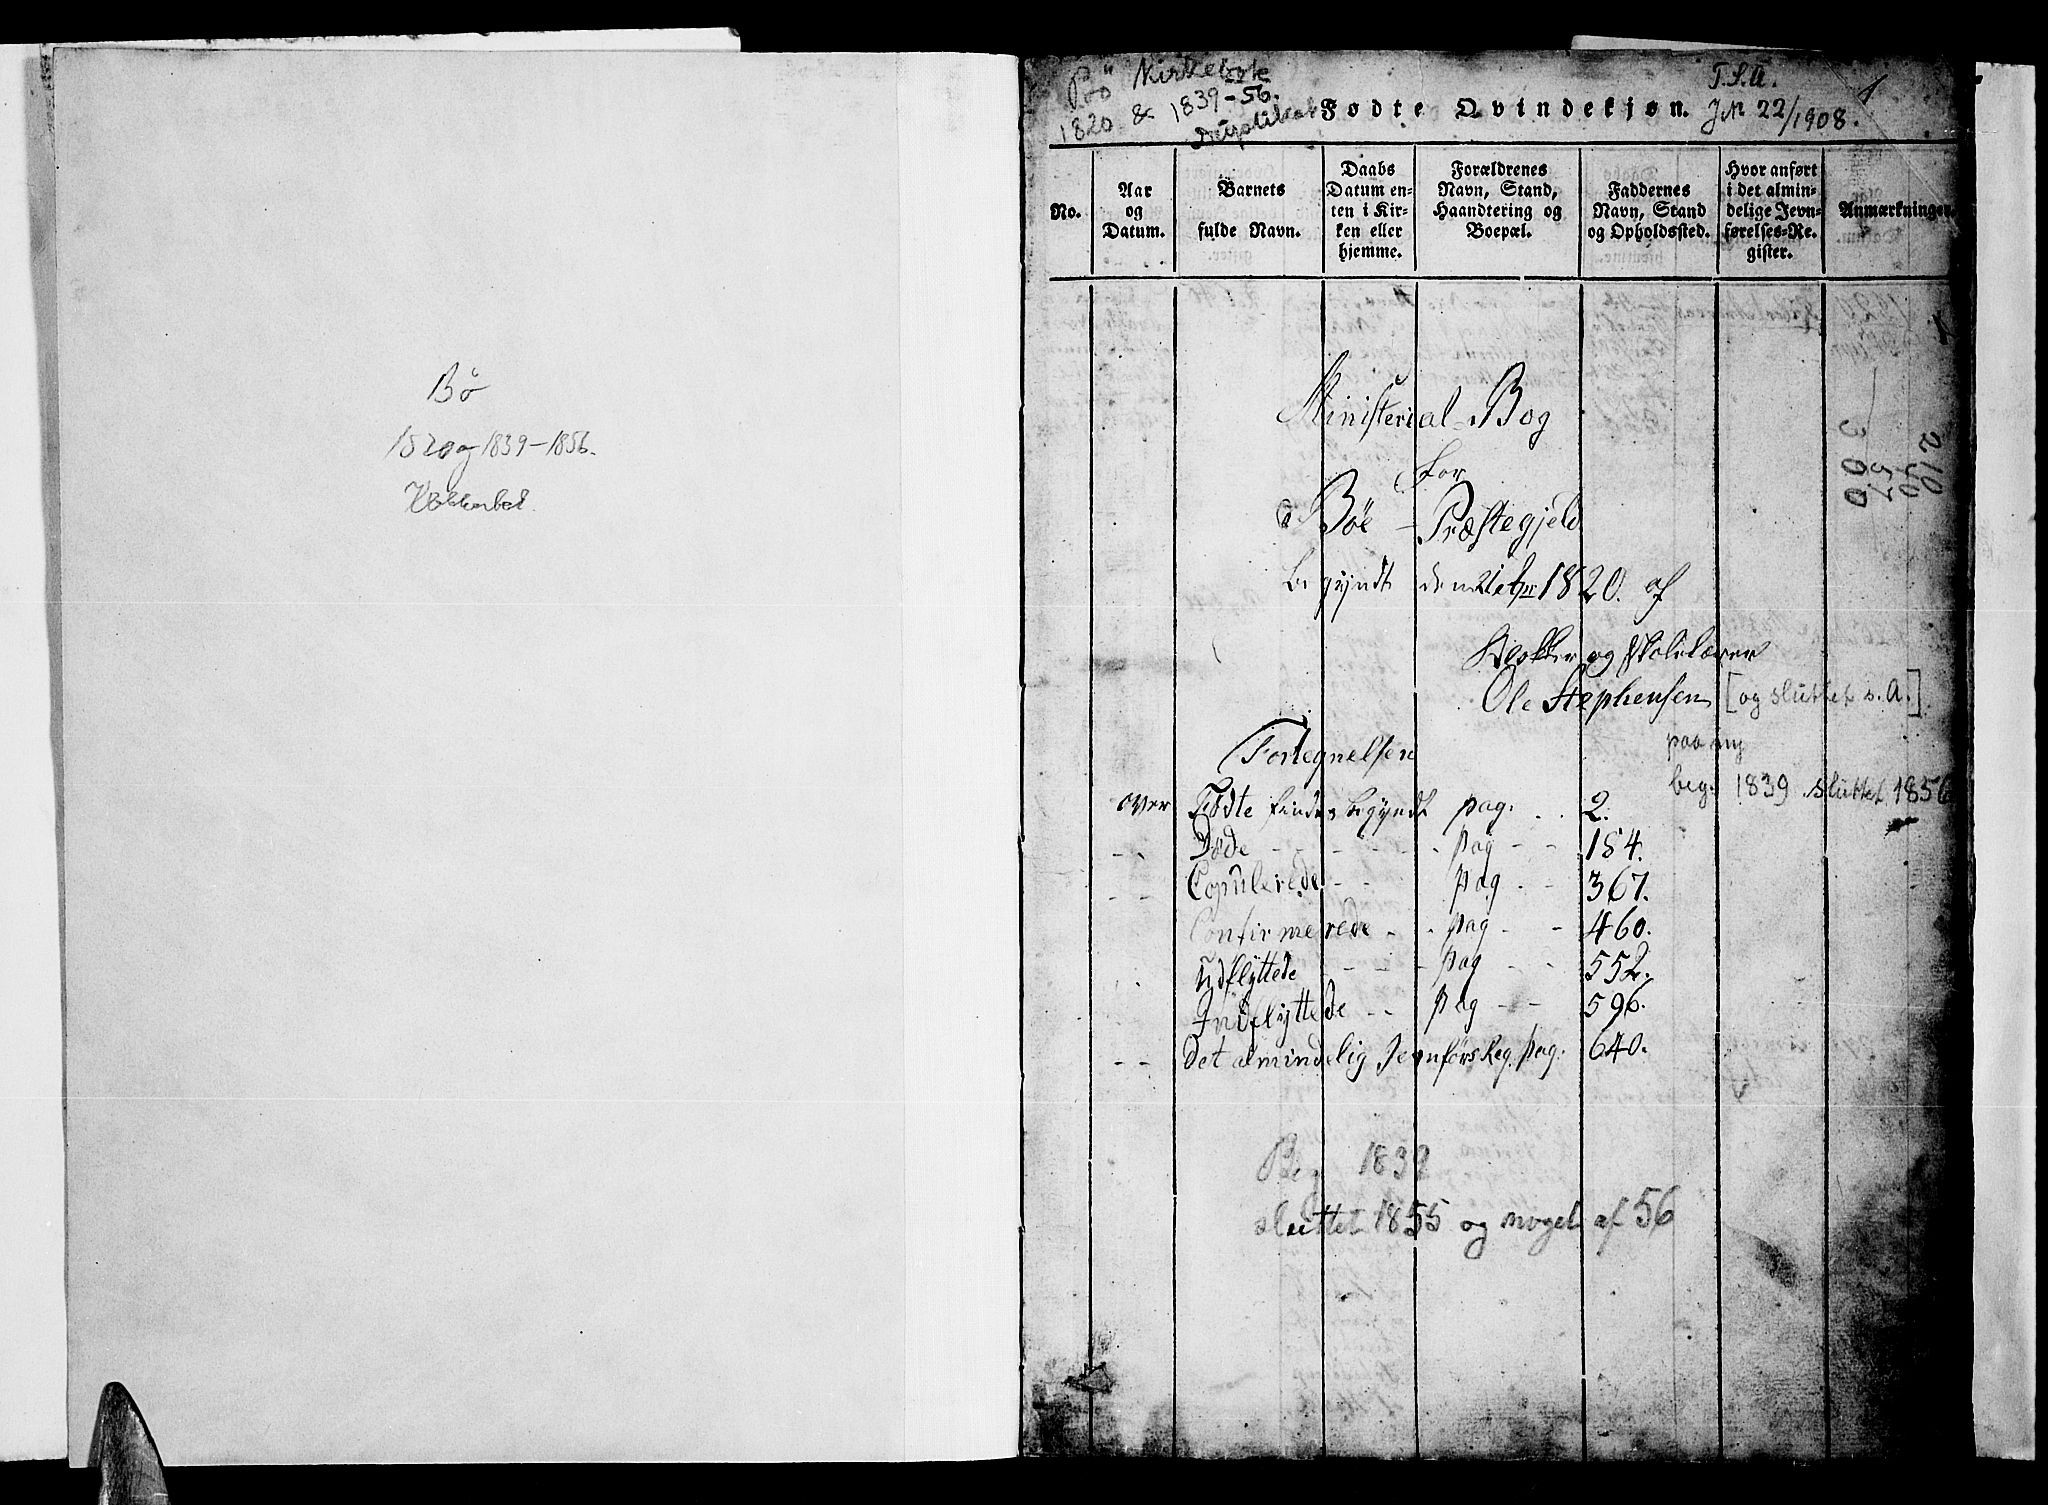 Bö
1820 og 1839-1856.
Klokkerbok
Bö Kirkebok
1820 & 1839-56.
Duplikat
T.S.A.
JN 22/1908.
1
Fødte Qvindekjøn.
No.
Aar
og
Datum.
Barnets
fulde Navn.
Daabs
Datum en-
ten i Kir-
ken eller
hjemme.
Forældrenes
Navn, Stand,
Haandtering og
Boepæl.
Faddernes
Navn, Stand
og Opholdssted.
Hvor anført
i det almin-
delige Jevn-
førelses-Re-
gister.
Anmærkninger.
Ministerial-Bog
for
Bøe - Præstegjeld
begyndt den 1820. af
Klokker og Skolelærer
Ole Stephensen [og sluttet s. A.]
paa ny
beg. 1839 sluttet 1856
210
40
57
300
Fortegnelsen
over Fødte findes begyndt pag. 2.
Døde pag 184.
Copulerede pag 367.
Confirmerede pag 460.
Udflyttede pag 552.
Indflyttede pag 596.
Det almindelig Jevnførs Reg. pag. 640.
Beg 1839
sluttet 1855 og noget af 56